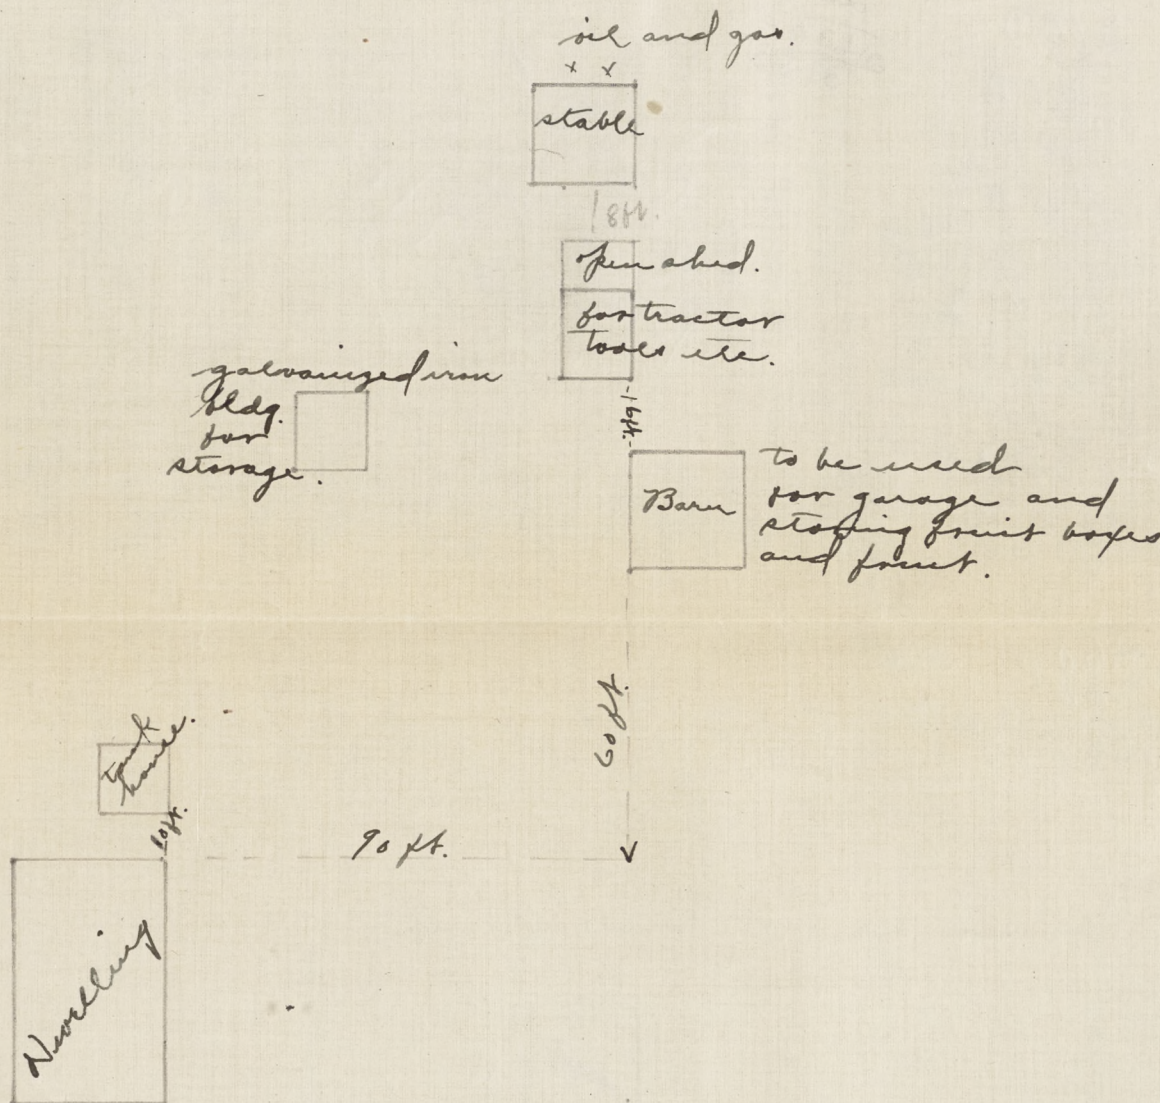 oil and gas.
x x
stable
18ft.
open shed.
for tractor
tools etc.
galvanized iron
bldg.
for
storage.
-16ft.-
Barn
to be used
for garage and
storing fruit boxes
and fruit.
60 ft.
tank
house.
10ft.
90 ft.
Dwelling